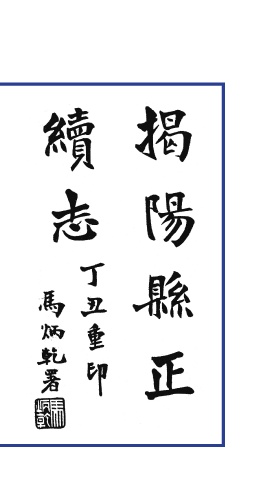 揭陽縣正
續志
丁丑重印
馬炳乾署